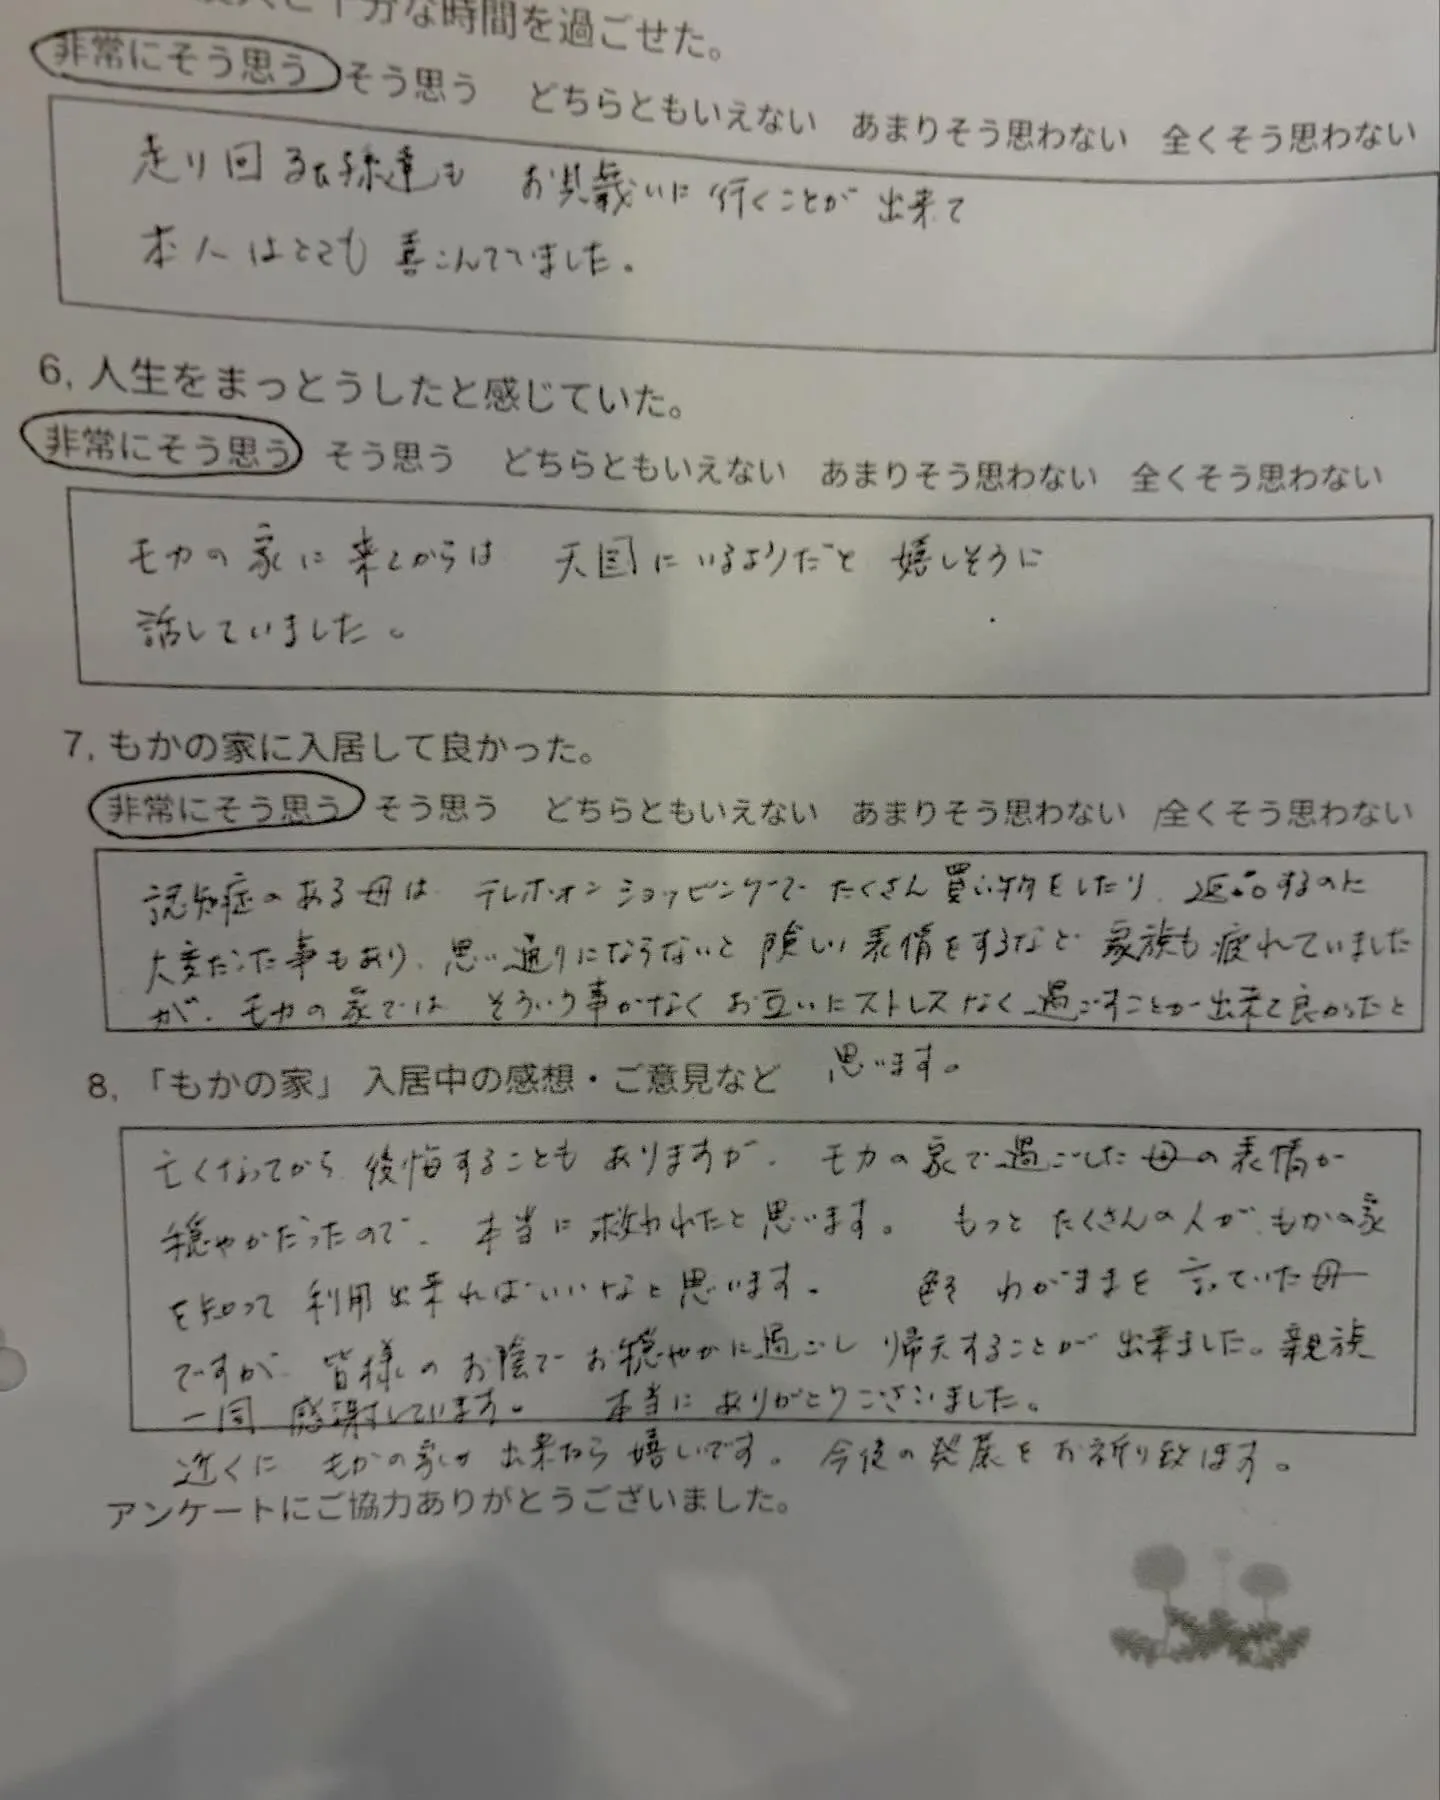 人と十分な時間を過ごせた。
非常にそう思う そう思う どちらともいえない あまりそう思わない 全くそう思わない
走り回る孫達も お見舞いに行くことが出来て
本人はとても喜こんでいました。
6, 人生をまっとうしたと感じていた。
非常にそう思う そう思う どちらともいえない あまりそう思わない 全くそう思わない
モカの家に来てからは 天国にいるようだと 嬉しそうに
話していました。
7, もかの家に入居して良かった。
非常にそう思う そう思う どちらともいえない あまりそう思わない 全くそう思わない
認知症のある母は テレホンショッピングで たくさん買い物をしたり、返品するのに
大変だった事もあり、思い通りにならないと 険しい表情をするなど 家族も疲れていました
が、モカの家では そういう事がなく お互いにストレスなく過ごすことが出来て良かったと
思います。
8, 「もかの家」 入居中の感想・ご意見など
亡くなってから 後悔することもありますが、モカの家で過ごした母の表情が
穏やかだったので、本当に救われたと思います。 もっと たくさんの人が、もかの家
を知って 利用出来ればいいなと思います。 わがままを 言っていた母
ですが、皆様のお陰で お穏やかに過ごし 帰天することが 出来ました。親族
一同 感謝しています。 本当に ありがとうございました。
近くに もかの家が 出来たら 嬉しいです。 今後の発展をお祈り致します。
アンケートにご協力ありがとうございました。